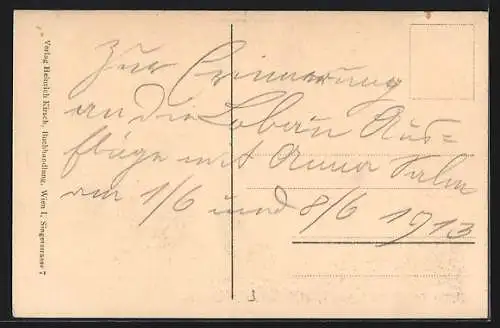 Zur Erinnerung
an die Lobau Aus=
flüge mit Anna Salm
am 1/6 und 8/6 1913
Verlag Heinrich Kirsch, Buchhandlung, Wien I, Singerstrasse 7